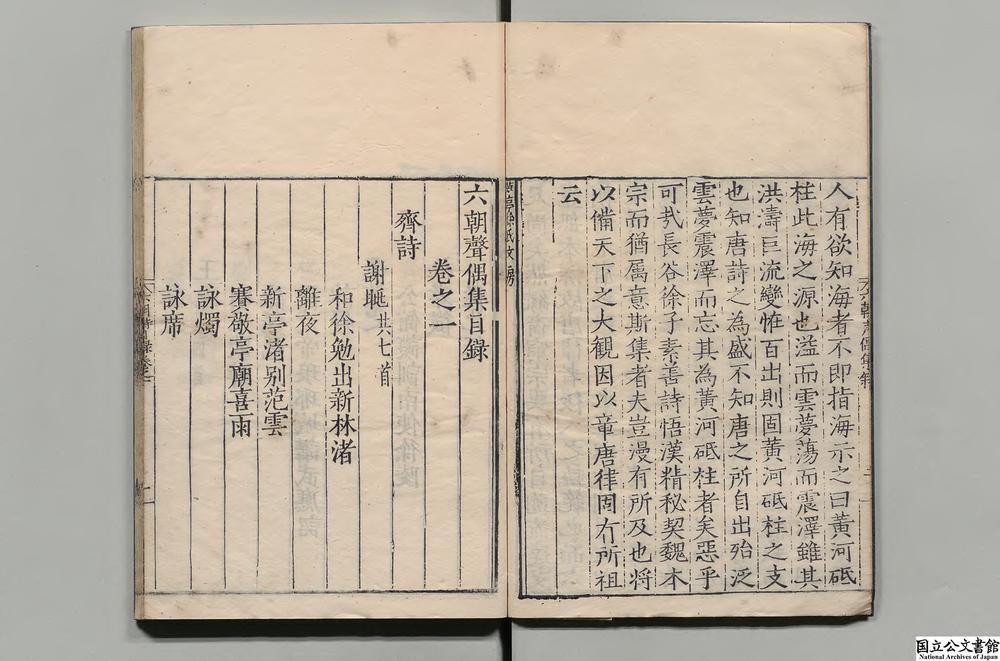 人有欲知海者不即指海示之曰黄河砥
柱此海之源也溢而雲夢蕩而震澤雖其
洪濤巨流變恠百出則固黄河砥柱之支
也知唐詩之為盛不知唐之所自出殆泛
雲夢震澤而忘其為黄河砥柱者矣惡乎
可㢤長谷徐子素善詩悟漢精秘契魏本
宗而猶属意斯集者夫豈漫有所及也將
以備天下之大觀因以章唐律固有所祖
云
六朝聲偶集目錄
卷之一
齊詩
謝朓共七首
和徐勉出新林渚
離夜
新亭渚别范雲
賽敬亭廟喜雨
詠燭
詠席
国立公文書館
National Archives of Japan